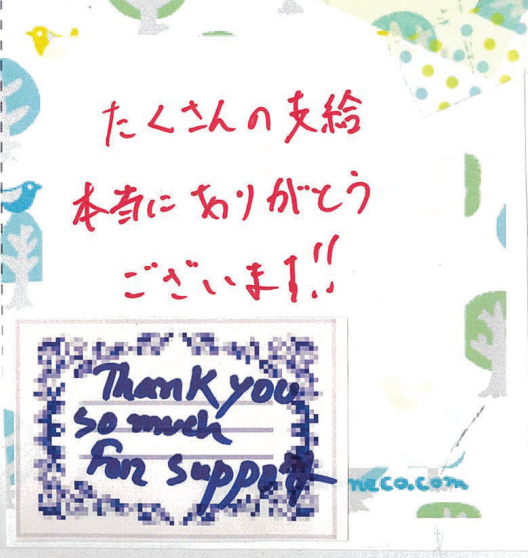 たくさんの支給
本当にありがとう
ございます!!
Thank you
so much
For support
neca.com